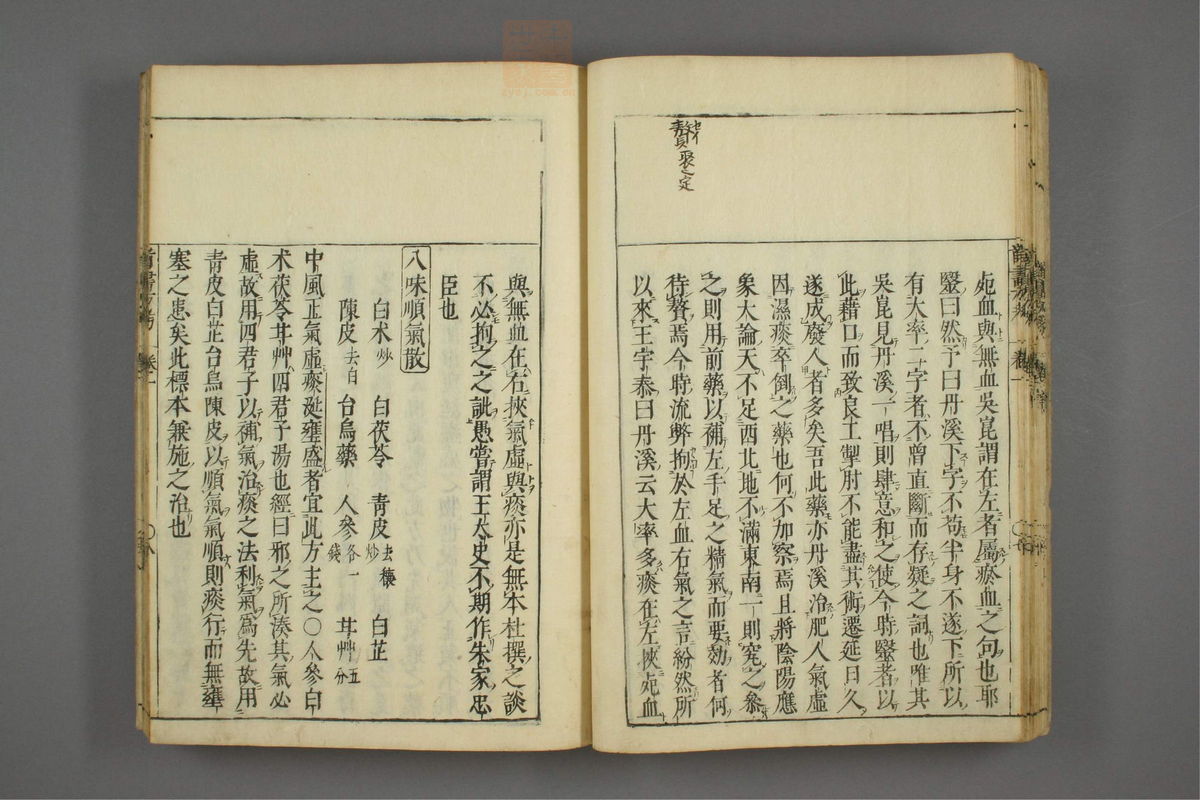 贅聚之定
死血與無血吳崑謂在左者屬瘀血之句也耶
醫曰然予曰丹溪下字不苟半身不遂下所以
有大率二字者不曾直斷而存疑之詞也唯其
吳崑見丹溪一唱則肆意和之使今時醫者以
此藉口而致良工掣肘不能盡其術遷延日久
遂成廢人者多矣吾此藥亦丹溪治肥人氣虛
因濕痰卒倒之藥也何不加察焉且將陰陽應
象大論天不足西北地不滿東南一則究之參
之則用前藥以補左手足之精氣而要効者何
待贅焉今時流弊拘於左血右氣之言紛然所
以來王宇泰曰丹溪云大率多痰在左挾死血
與無血在右挾氣虛與痰亦是無本杜撰之談
不必拘之之訿愚嘗謂王太史不期作朱家忠
臣也
八味順氣散
白术炒 白茯苓 青皮去穰炒 白芷
陳皮去白 台烏藥 人參各一錢 甘艸五分
中風正氣虛痰涎壅盛者宜此方主之〇人參白
术茯苓甘艸四君子湯也經曰邪之所湊其氣必
虛故用四君子以補氣治痰之法利氣為先故用
青皮白芷台烏陳皮以順氣氣順則痰行而無壅
塞之患矣此標本兼施之治也